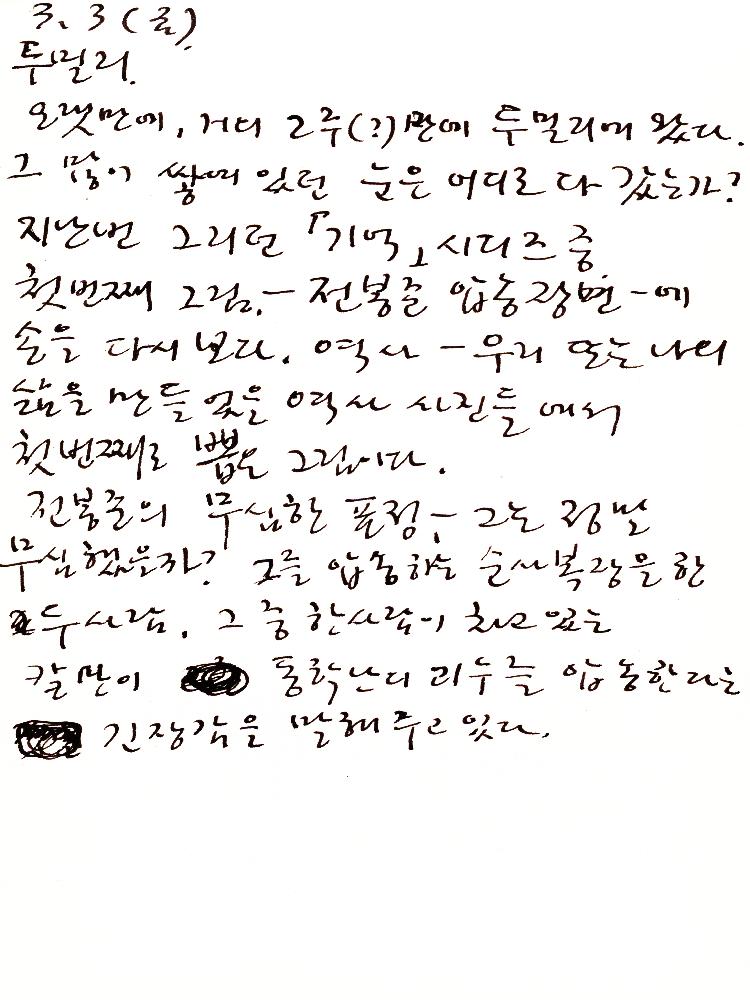 3. 3 (금).
두밀리.
오랫만에, 거의 2주(?)만에 두밀리에 왔다.
그 많이 쌓여 있던 눈은 어디로 다 갔는가?
지난번 그리던 『기억』시리즈 중
첫번째 그림. - 전봉준 압송장면 - 에
손을 다시 보다. 역사 - 우리 또는 나의
삶을 만들었을 역사 사진들에서
첫번째로 뽑은 그림이다.
전봉준의 무심한 표정, - 그는 정말
무심했을까? 그를 압송하는 순사복장을 한
두사람. 그 중 한사람이 차고 있는
칼만이 동학난의 괴수를 압송한다는
긴장감을 말해주고 있다.